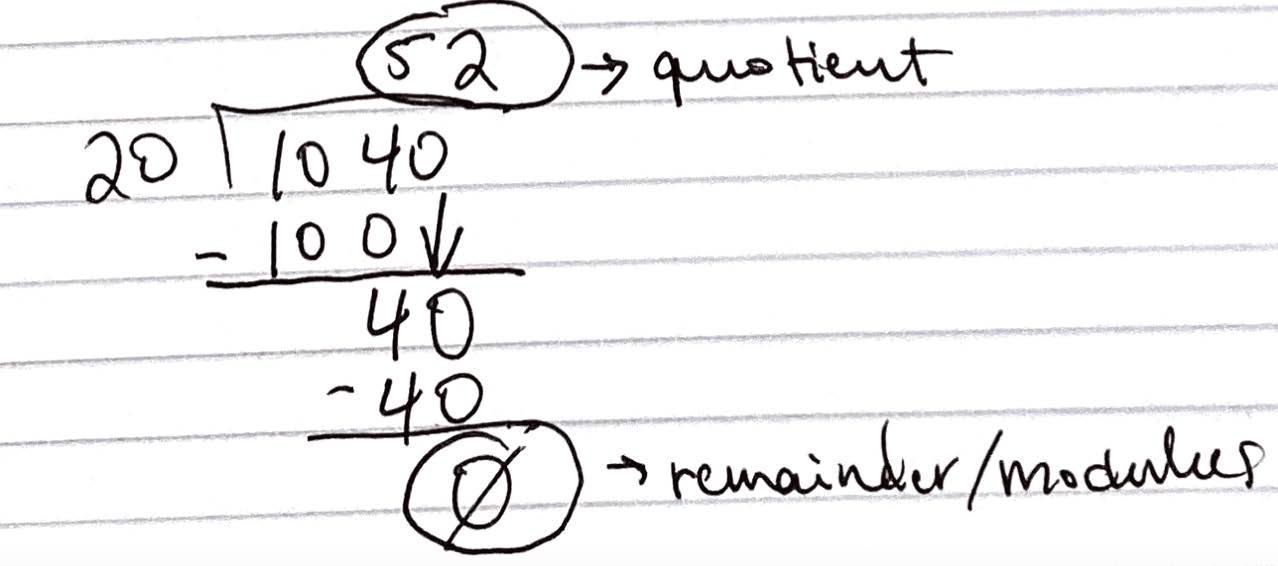 52 → quotient
20 1040
- 100↓
40
- 40
0 → remainder/modulus